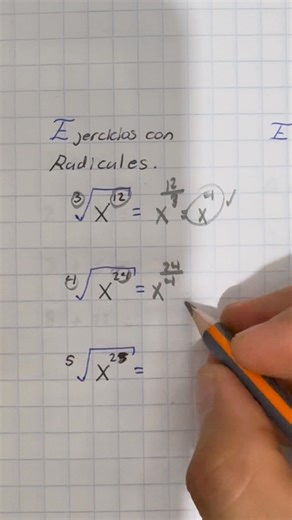 Ejercicios con E
Radicales.
³√x¹² = x^(12/3) = x⁴ ✓
⁴√x²⁴ = x^(24/4)
⁵√x²⁵ =